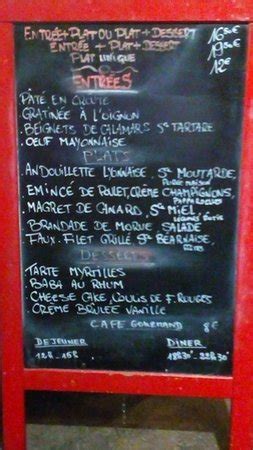 ENTRÉE+PLAT OU PLAT+DESSERT 16,50€
ENTRÉE + PLAT+DESSERT 19,50€
PLAT UNIQUE 12€
ENTRÉES
PÂTÉ EN CROUTE
GRATINÉE À L'OIGNON
BEIGNETS DE CALAMARS Sce TARTARE
.OEUF MAYONNAISE
PLATS
ANDOUILLETTE LYONNAISE, Sce MOUTARDE,
PURÉE MAISON
EMINCÉ DE POULET, CRÈME CHAMPIGNONS,
PAPPARDELLES
.MAGRET DE CANARD, Sce MIEL,
LÉGUMES
BRANDADE DE MORUE, SALADE
.FAUX-FILET GRILLÉ Sce BÉARNAISE,
FRITES
DESSERTS
TARTE MYRTILLES
.BABA AU RHUM
.CHEESE CAKE, COULIS DE F. ROUGES
.CRÈME BRULÉE VANILLE
CAFÉ GOURMAND 8€
DEJEUNER DINER
12H-15H 18H30-22H30